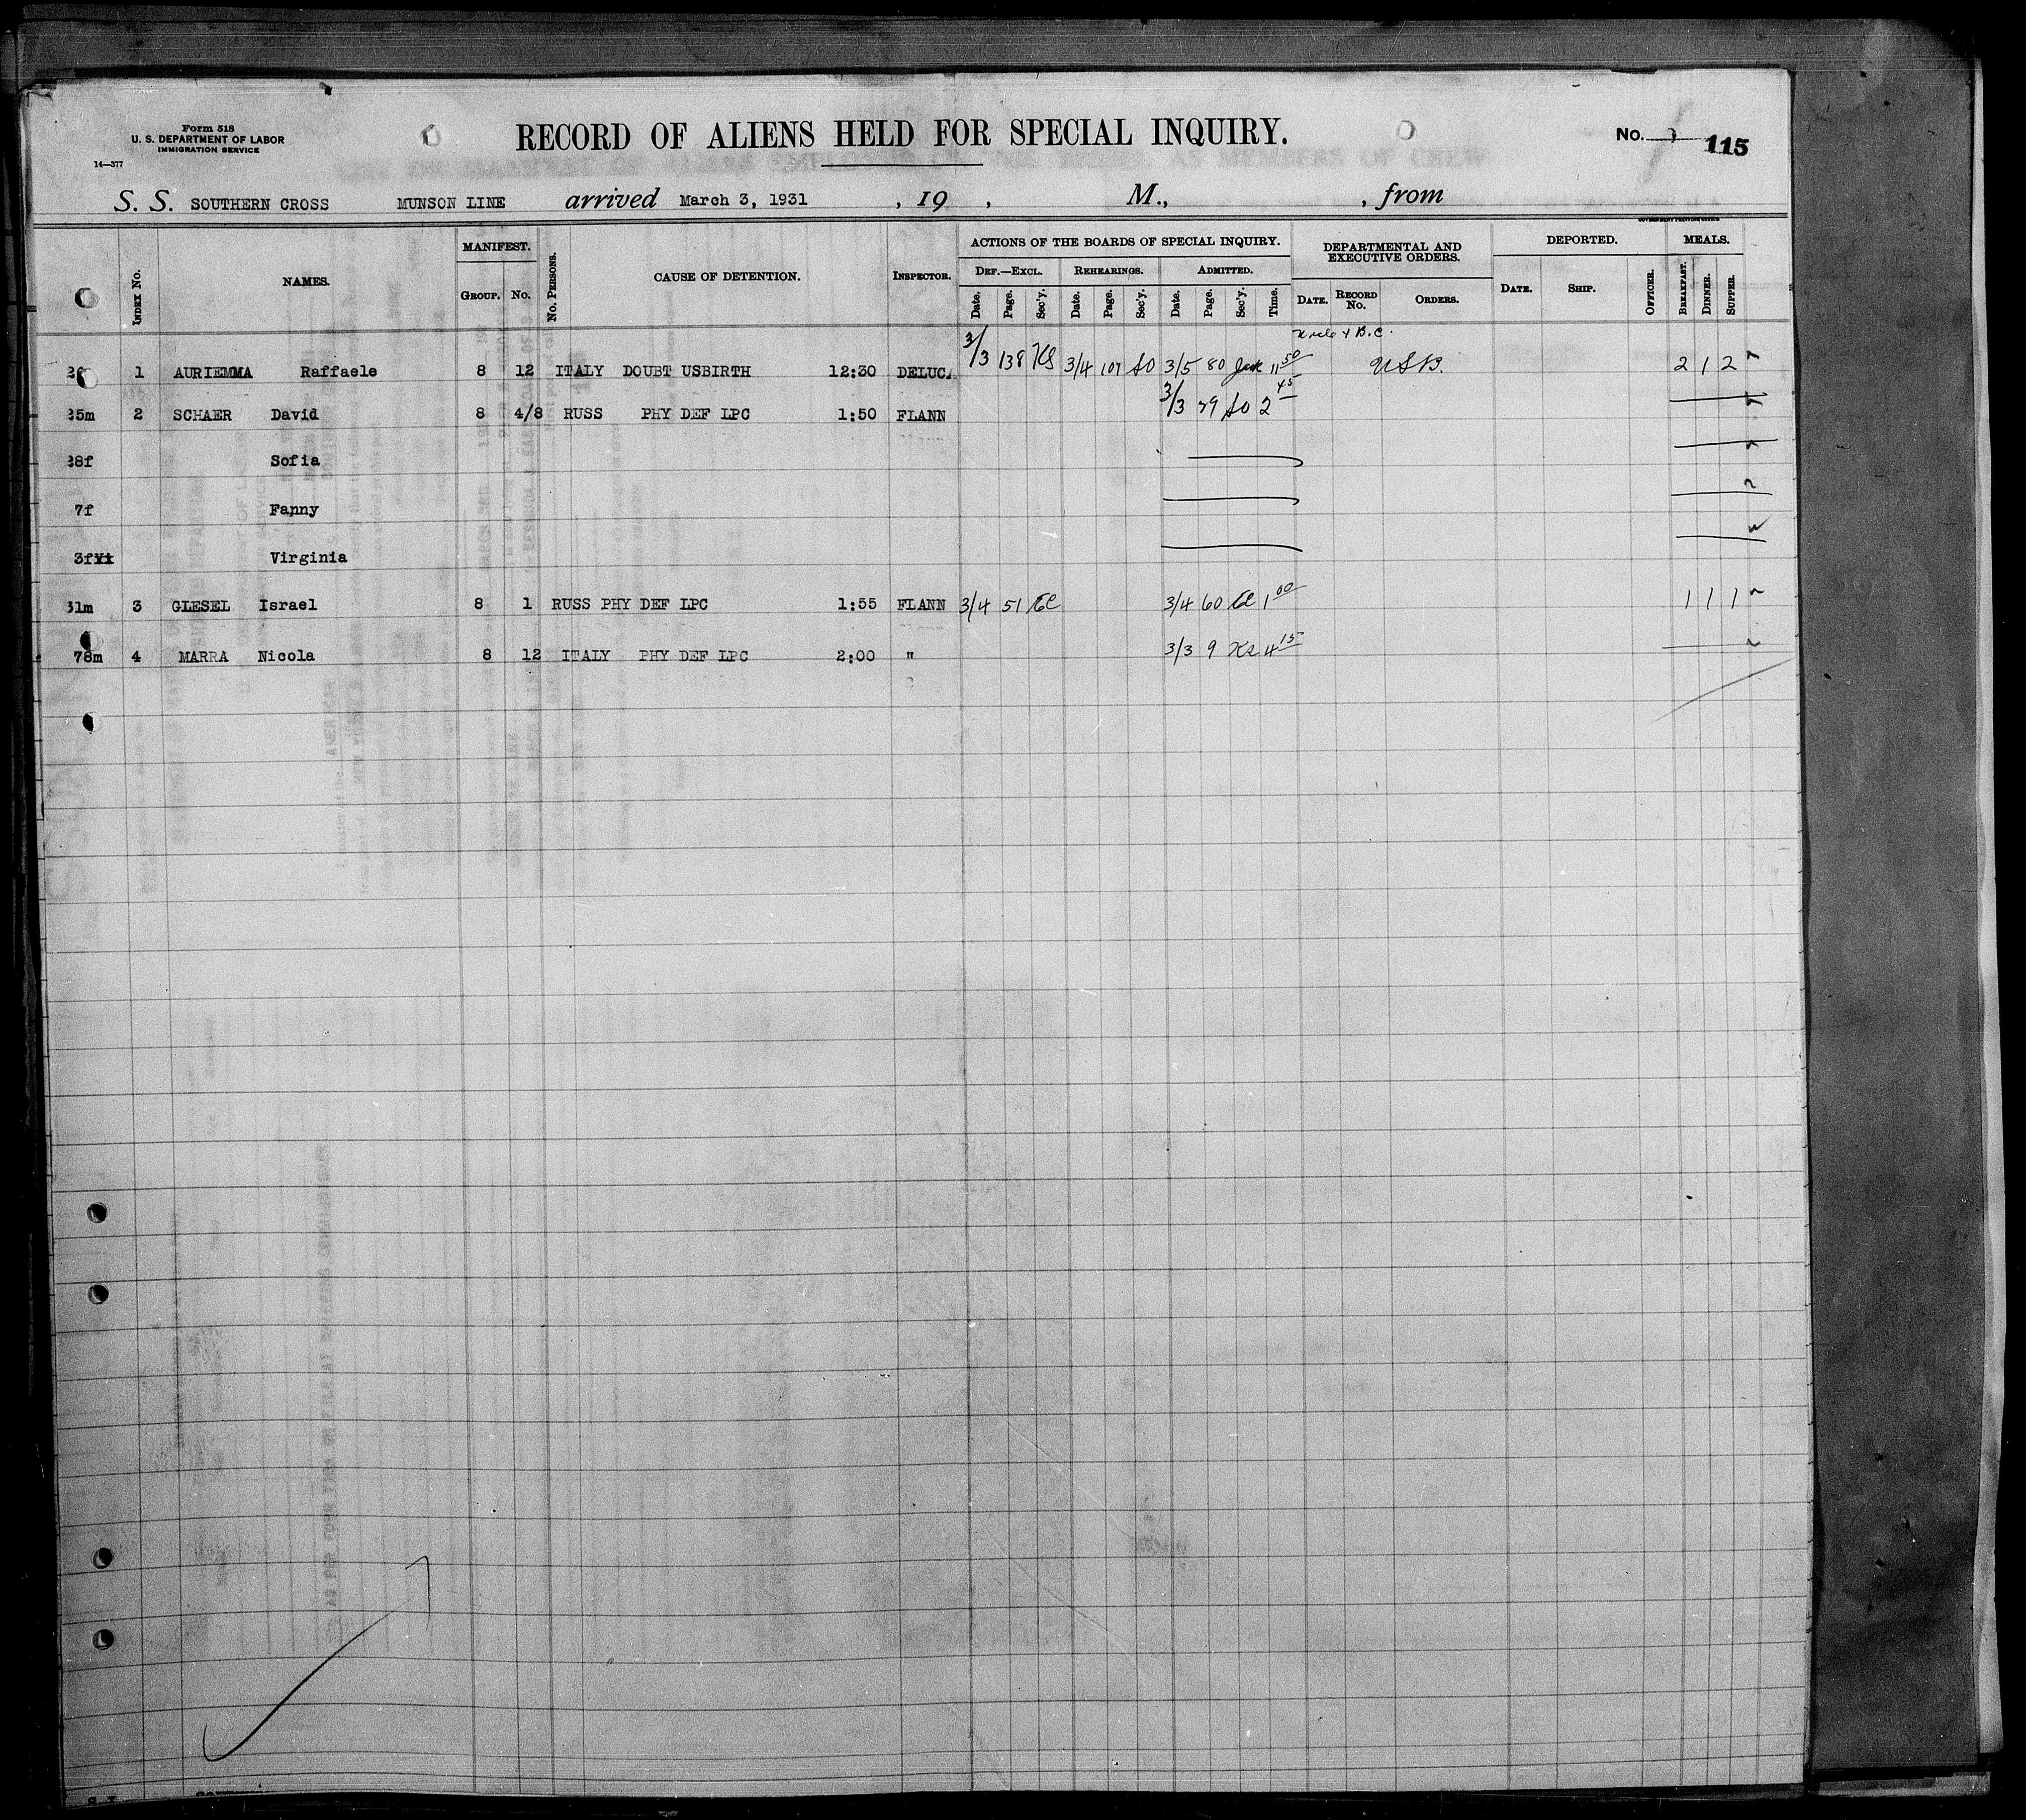 Form 518
U. S. DEPARTMENT OF LABOR
IMMIGRATION SERVICE
14—377
RECORD OF ALIENS HELD FOR SPECIAL INQUIRY.
No. 115
S. S. SOUTHERN CROSS MUNSON LINE arrived March 3, 1931 , 19 , M., , from
GOVERNMENT PRINTING OFFICE
INDEX No. NAMES. MANIFEST. GROUP. No. No. PERSONS. CAUSE OF DETENTION. INSPECTOR. ACTIONS OF THE BOARDS OF SPECIAL INQUIRY. DEPARTMENTAL AND EXECUTIVE ORDERS. DEPORTED. MEALS.
DEF.—EXCL. REHEARINGS. ADMITTED.
Date. Page. Sec'y. Date. Page. Sec'y. Date. Page. Sec'y. Time. DATE. RECORD No. ORDERS. DATE. SHIP. OFFICER. BREAKFAST. DINNER. SUPPER.
Uncle + B.C.
1 AURIEMMA Raffaele 8 12 ITALY DOUBT USBIRTH 12:30 DELUCA 3/3 138 KS 3/4 107 SO 3/5 80 11 50 USB. 2 1 2
35m 2 SCHAER David 8 4/8 RUSS PHY DEF LPC 1:50 FLANN 3/3 29 SO 2 45
38f Sofia
7f Fanny
3f Virginia
31m 3 GLESEL Israel 8 1 RUSS PHY DEF LPC 1:55 FLANN 3/4 51 3/4 60 1 00 1 1 1
78m 4 MARRA Nicola 8 12 ITALY PHY DEF LPC 2:00 " 3/3 9 4 15